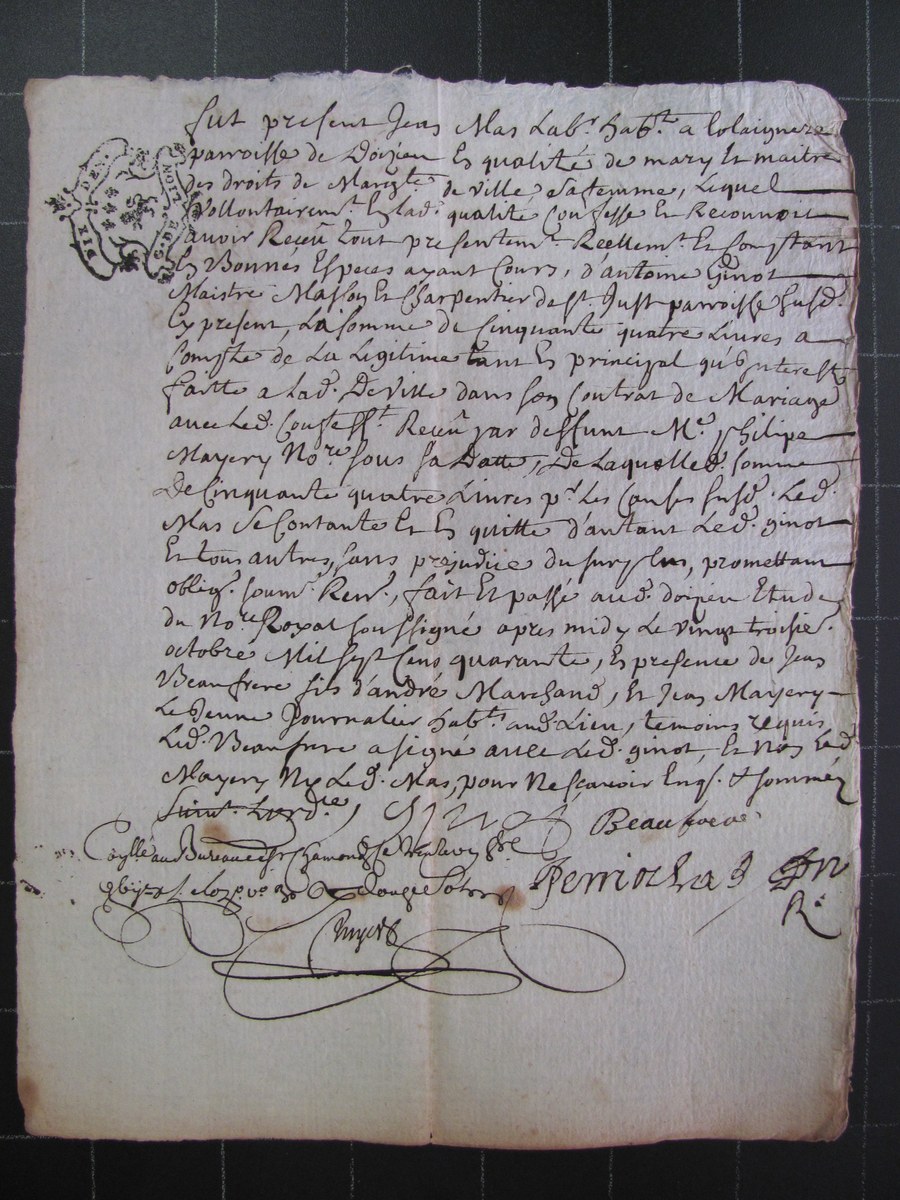 SIX DEN.
G. DE LYON
fut present Jean Mas Labr. habt. a Colaignere
parroisse de Doizieu En qualité de mary Et maitre
des droits de Margte. de ville sa femme, Lequel
Vollontairemt. En lad. qualité Confesse Et Reconnoit
avoir Receu tout presentemt. Réellemt. Et Comptant
En Bonnes Especes ayant Cours, d'antoine Ginot
Maistre Masson Et Charpentier de St. Just parroisse susd.
Cy present, La somme de Cinquante quatre Livres a
Compte de La Legitime tant En principal qu'Interest
faitte a Lad. De ville dans son Contrat de Mariage
avec Led. Confesst. Receu par deffunt Me. philipe
Mayery Nore. sous sa Datte, De Laquelle d. somme
De Cinquante quatre Livres pr. Les Causes susd. Led.
Mas Se Contante Et En quitte d'autant Led. ginot
Et tous autres, sans prejudice du surplus, promettant
obligt. soumt. Rent., fait Et passé aud. doizieu Etude
du Nore. Royal soussigné apres midy Le vingt troisie.
octobre Mil sept Cens quarante, En presence de Jean
Beaufrere fils d'andré Marchand, Et Jean Mayery
Le Jeune Journalier habt. aud. Lieu, temoins requis
Led. Beaufrere a signé avec Led. ginot, Et non Led.
Mayery Ny Led. Mas, pour Ne sçavoir Enqs. & sommés
ginot Beaufrere
au Bureau de St Chamond Le